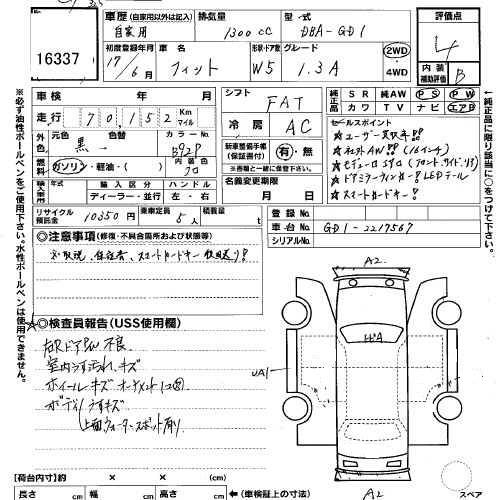 16337
車歴 (自家用以外は記入)
自家用
排気量
1300cc
型式
DBA-GD1
評価点
4
内装
補助評価
B
初度登録年月
17/6月
車名
フィット
形状・ドア数
W5
グレード
1.3A
2WD
・
4WD
車検 年 月
走行 70,152 Km
マイル
外色
元色
黒
色替
カラーNo.
B92P
燃料
ガソリン・軽油・( )
内装色
クロ
輸入車
年式
輸入区分
ディーラー・並行
ハンドル
左・右
リサイクル預託金
10350円
乗車定員
5人
積載量
t
シフト
FAT
冷房
AC
車両整備手帳
(保証書付)
有・無
※車種と一緒に提出
名義変更期限
月 日
純正品
SR 純AW PS PW
カワ TV ナビ エアB
セールスポイント
★ユーザー買取車!!
★社外AW!! (16インチ)
★ドアミラーウィンカー!! LEDテール
★スマートカードキー!
登録No.
車台No.
GD1-2217567
シリアルNo.
◎注意事項 (修復・不具合箇所および状態等)
取説、保証書、スマートカードキー後日送り!
☆◎検査員報告 (USS使用欄)
右Rドア 不良
室内うす汚れ、キズ
ホイールキズ
ボディうすキズ
上面ウォータースポット有り
A2
UA1
A2
スペア
【荷台内寸】約 × × (cm)
長さ cm 幅 cm 高さ cm
←(車検証上の寸法)
※必ず油性ボールペンをご使用下さい。水性ボールペンは使用できません。
←純正品に限り該当に○をつけて下さい。